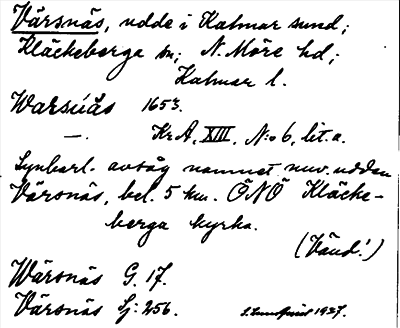 Värsnäs, udde i Kalmar sund;
Kläckeberga sn; N. Möre hd;
Kalmar l.
Warsnäs 1653.
—. Kr.A, XIII, N:o 6, lit. a.
Synbarl. avsåg namnet nuv. udden
Värsnäs, bel. 5 km. ÖNÖ Kläcke-
berga kyrka.
(Vänd!)
Wärsnäs G. 17.
Värsnäs Lj: 256. 1927.